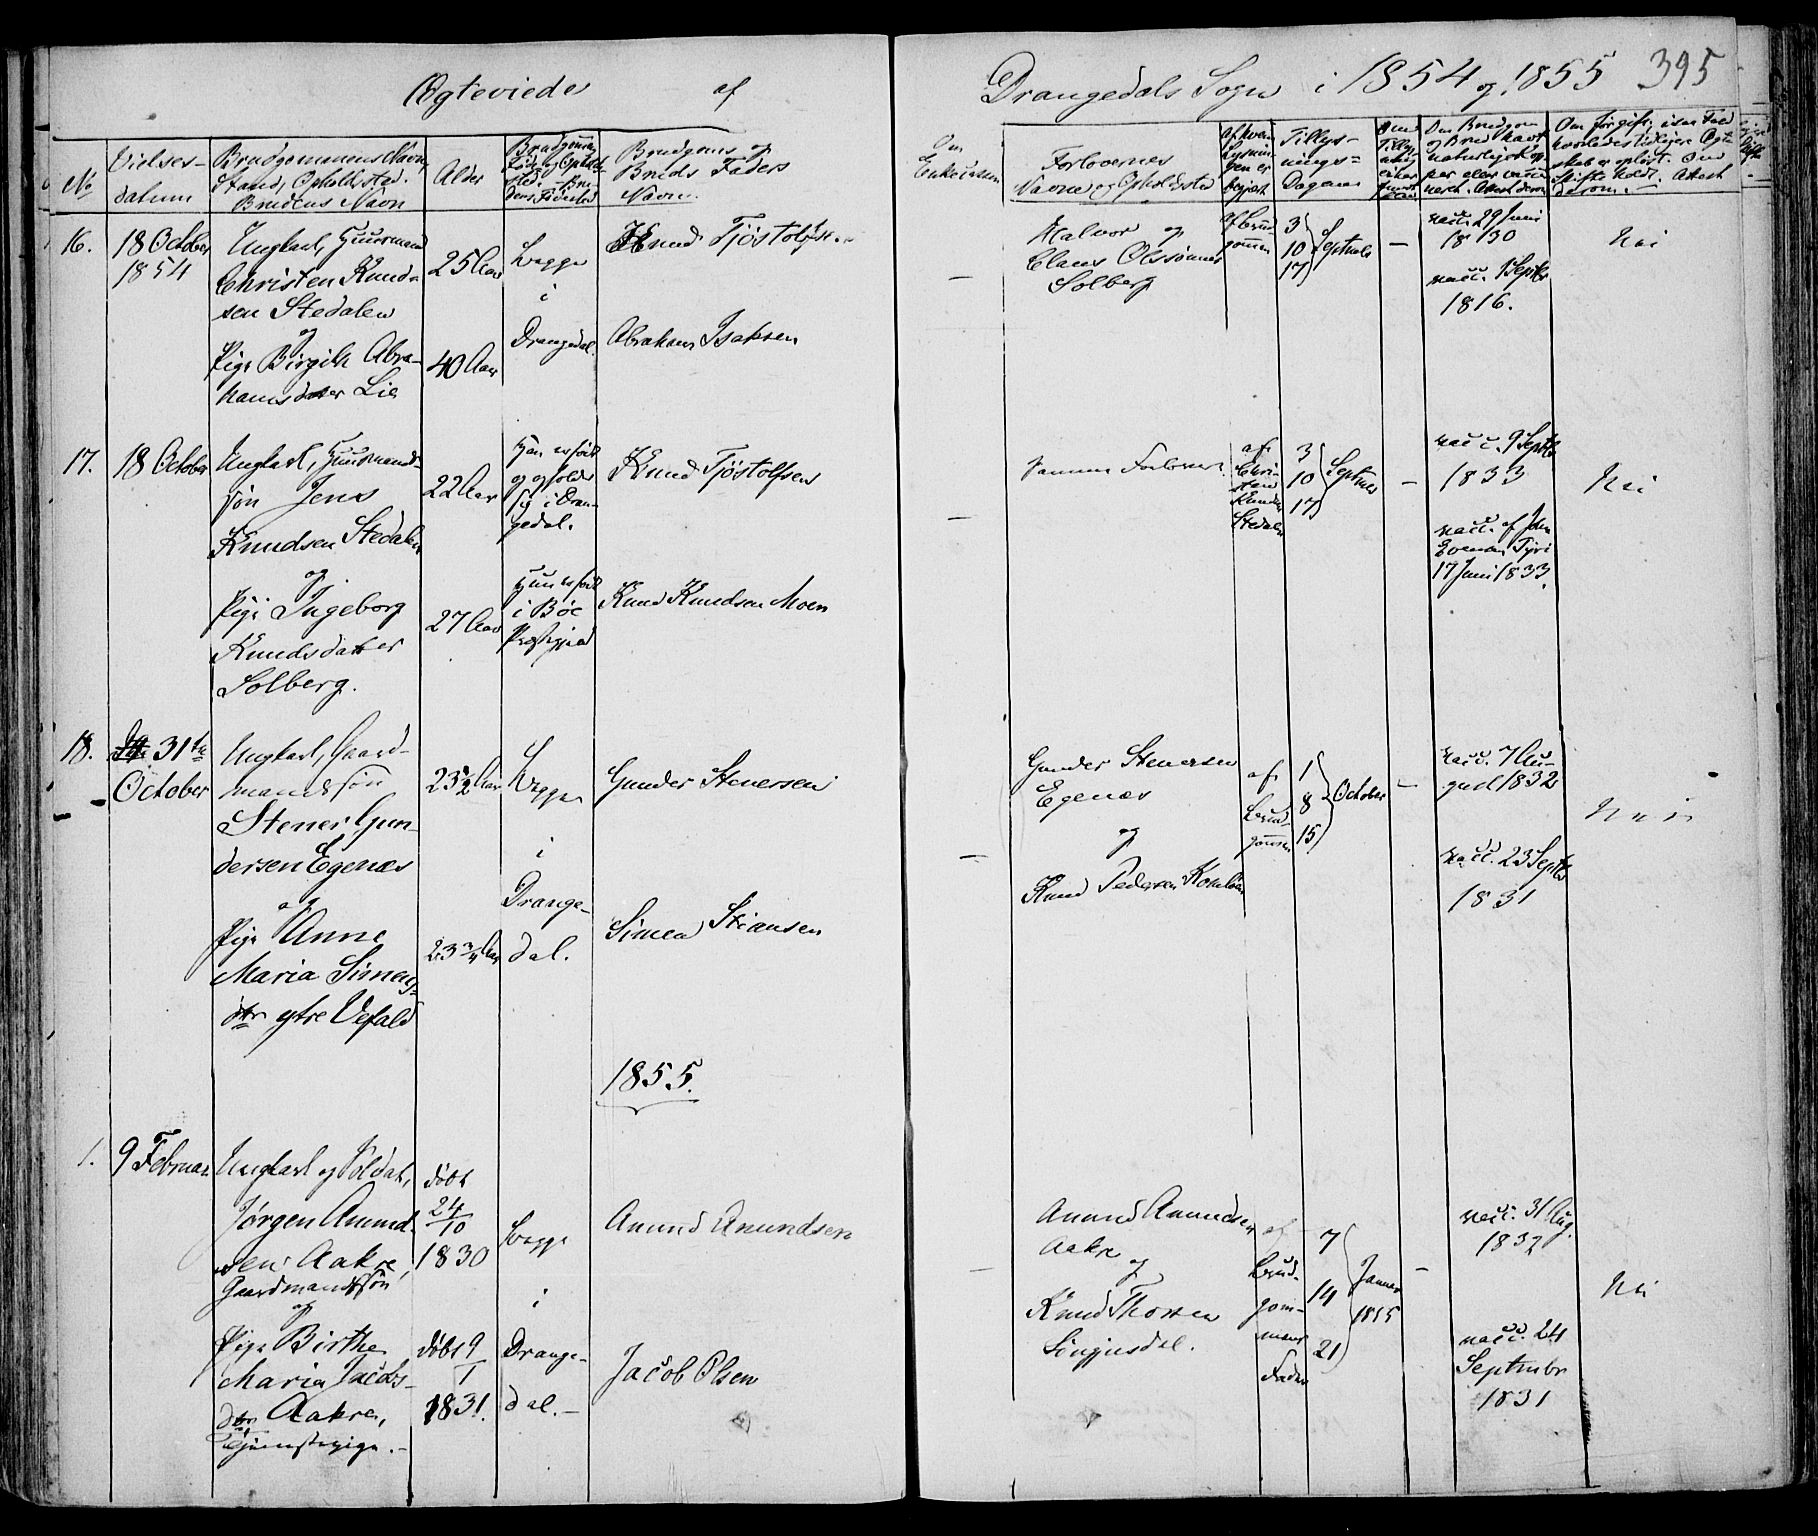 Ægteviede af Drangedals Sogn i 1854 og 1855 395
No
Vielses-
datum
Brudgommens Navn,
Stand, Opholdsted.
Brudens Navn
Alder
Brudgoms og
Bruds Faders
Navn.
Forlovernes
Navne og Opholdsted
Tillys-
nings-
Dagene
16.
18 October
1854
Ungkarl, Huusmand
Christen Knud-
sen Stedalen
og
Pige Birgith Abra-
hamsdatter Lie
25 Aar
40 Aar
begge
i
Drangedal.
Knud Tjöstolfsen
Abraham Isaksen
—
Halvor og
Claus Olssönner
Solberg
af Brud-
gommen
3
10
17
Septmbr
—
vacc. 29 Juni
1830
vacc. 1 Septbr
1816.
Nei
17.
18 October
Ungkarl, Huusmands-
søn Jens
Knudsen Stedalen
og
Pige Ingeborg
Knudsdatter
Solberg.
22 Aar
27 Aar
Han er född
og opholder
sig i Dran-
gedal.
Hun er född
i Böe
Præstegjeld
Knud Tjöstolfsen
Knud Knudsen Moen
—
Samme Forlovere
af
Chri-
sten
Knudsen
Stedalen
3
10
17
Septmbr
—
vacc. 9 Septbr
1833
vacc. af John
Evensen Tyri
17 Juni 1833.
Nei
18.
31te
October
Ungkarl, Gaard-
mandssøn
Stener Gun-
dersen Egenæs
og
Pige Anne
Maria Simens-
dtr ytre Vefald
23 1/2 Aar
23 3/4 Aar
begge
i
Drange-
dal.
Gunder Stenersen
Simen Stiansen
—
Gunder Stenersen
Egenæs
og
Knud Pedersen
af
Brud-
gommen
1
8
15
October
—
vacc. 7 Au-
gust 1832
vacc. 23 Septbr
1831
Nei
1855.
1.
9 Februar
Ungkarl og Soldat,
Jørgen Anund-
sen Aakre,
Gaardmandssøn
og
Pige Birthe
Maria Jacobs-
dtr Aakre,
Tjenstepige.-
döbt
24
10
1830
döbt 9
1
1831.
begge
i
Drange-
dal.-
Anund Anundsen
Jacob Olsen
Anund Anundsen
Aakre
og
Knud Thorsen
af
Brud-
gom-
mens
Fader
7
14
21
Januar
1855
—
vacc. 31 Aug.
1832
vacc. 24
Septembr
1831
Nei